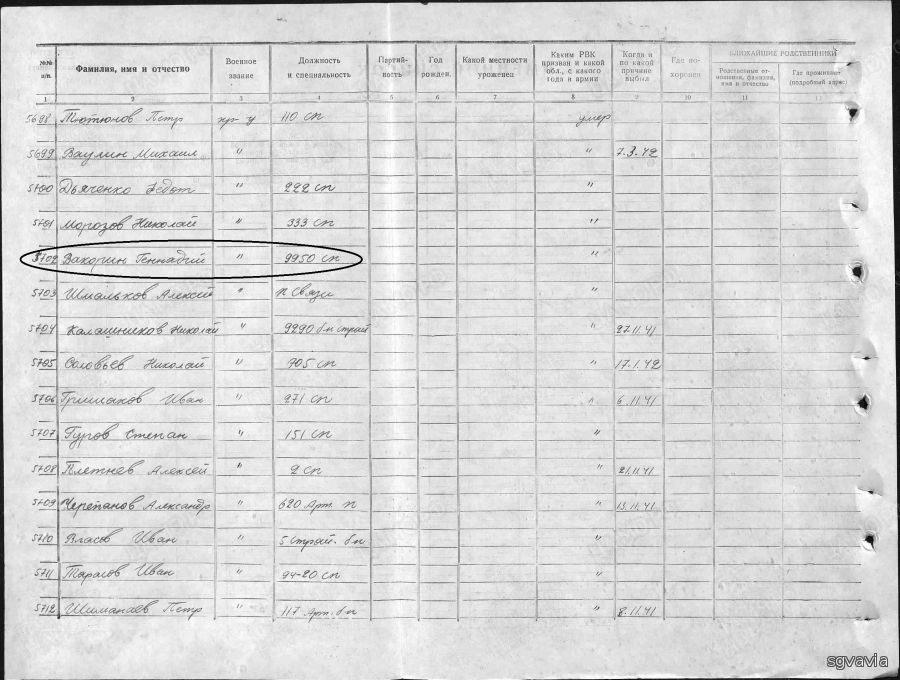 №№ п/п. Фамилия, имя и отчество Военное звание Должность и специальность Партий-ность Год рожден. Какой местности уроженец Каким РВК призван и какой обл., с какого года и армии Когда и по какой причине выбыл Где по-хоронен БЛИЖАЙШИЕ РОДСТВЕННИКИ
Родственные от-ношения, фамилия, имя и отчество Где проживает (подробный адрес)
1 2 3 4 5 6 7 8 9 10 11 12
5698 Тютюнов Петр кр-ц 110 сп умер
5699 Ваулин Михаил " " 7.3.42
5700 Дьяченко Федот " 222 сп "
5701 Морозов Николай " 333 сп "
5702 Вакорин Геннадий " 9950 сп "
5703 Шмальков Алексей " п Связи "
5704 Калашников Николай " 9290 б-н строй " 27.11.41
5705 Соловьев Николай " 905 сп " 17.1.42
5706 Гришаков Иван " 271 сп " 6.11.41
5707 Гуров Степан " 151 сп "
5708 Плетнев Алексей " 2 сп " 21.11.41
5709 Черепанов Александр " 620 Арт. п " 13.11.41
5710 Власов Иван " 5 Строй. б-н "
5711 Тарасов Иван " 94-20 сп "
5712 Шиманаев Петр " 117 Арт. б-н " 8.11.41
sgvavia